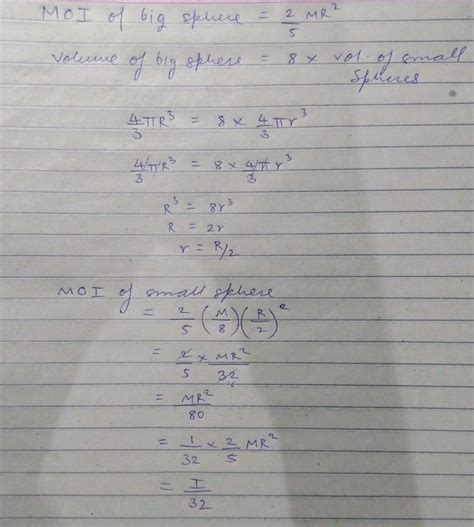 MOI of big sphere = 2/5 MR²
Volume of big sphere = 8 × vol. of small spheres
4/3 πR³ = 8 × 4/3 πr³
4/3 πR³ = 8 × 4/3 πr³
R³ = 8r³
R = 2r
r = R/2
MOI of small sphere
= 2/5 (M/8) (R/2)²
= 2/5 × MR²/32
= MR²/80
= 1/32 × 2/5 MR²
= I/32